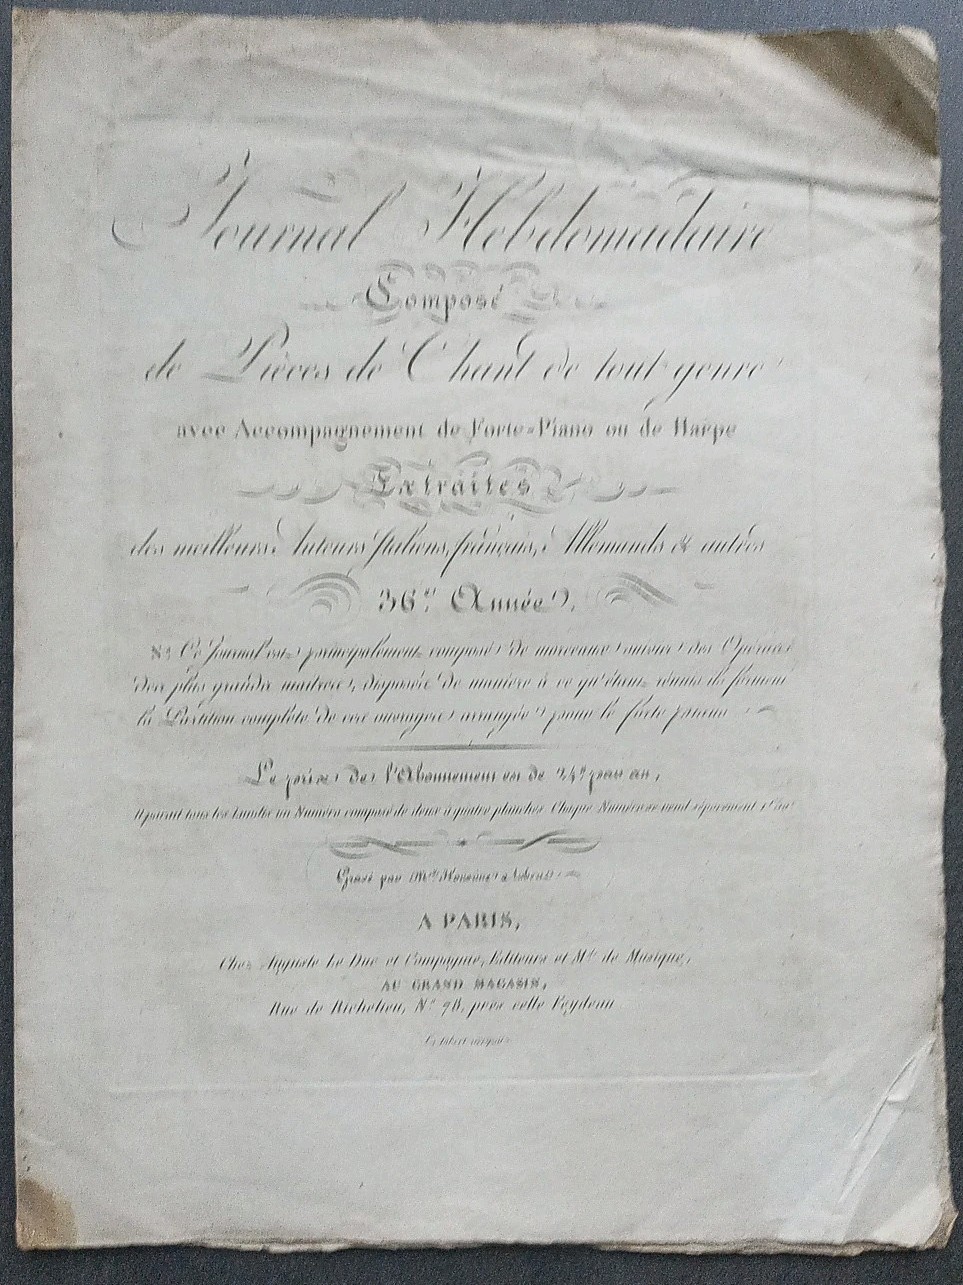 Journal Hebdomadaire
Composé
de Pièces de Chant de tout genre
avec Accompagnement de Forte=Piano ou de Harpe
Extraites
des meilleurs Auteurs Italiens, français, Allemands & autres
36.e Année.
Ce Journal est principalement composé de morceaux des Opéras
des plus grands maitres, disposés de manière à ce qu'étant réunis ils forment
la Partition complète de ces ouvrages arrangée pour le forte piano
Le prix de l'Abonnement est de 24 par an,
Il parait tous les lundis un Numéro composé de deux à quatre planches Chaque Numéro se vend séparément
Gravé par
A PARIS,
Chez Auguste Le Duc et Compagnie, Editeurs et M.ds de Musique,
AU GRAND MAGASIN,
Rue de Richelieu, N.o 78, près celle Feydeau